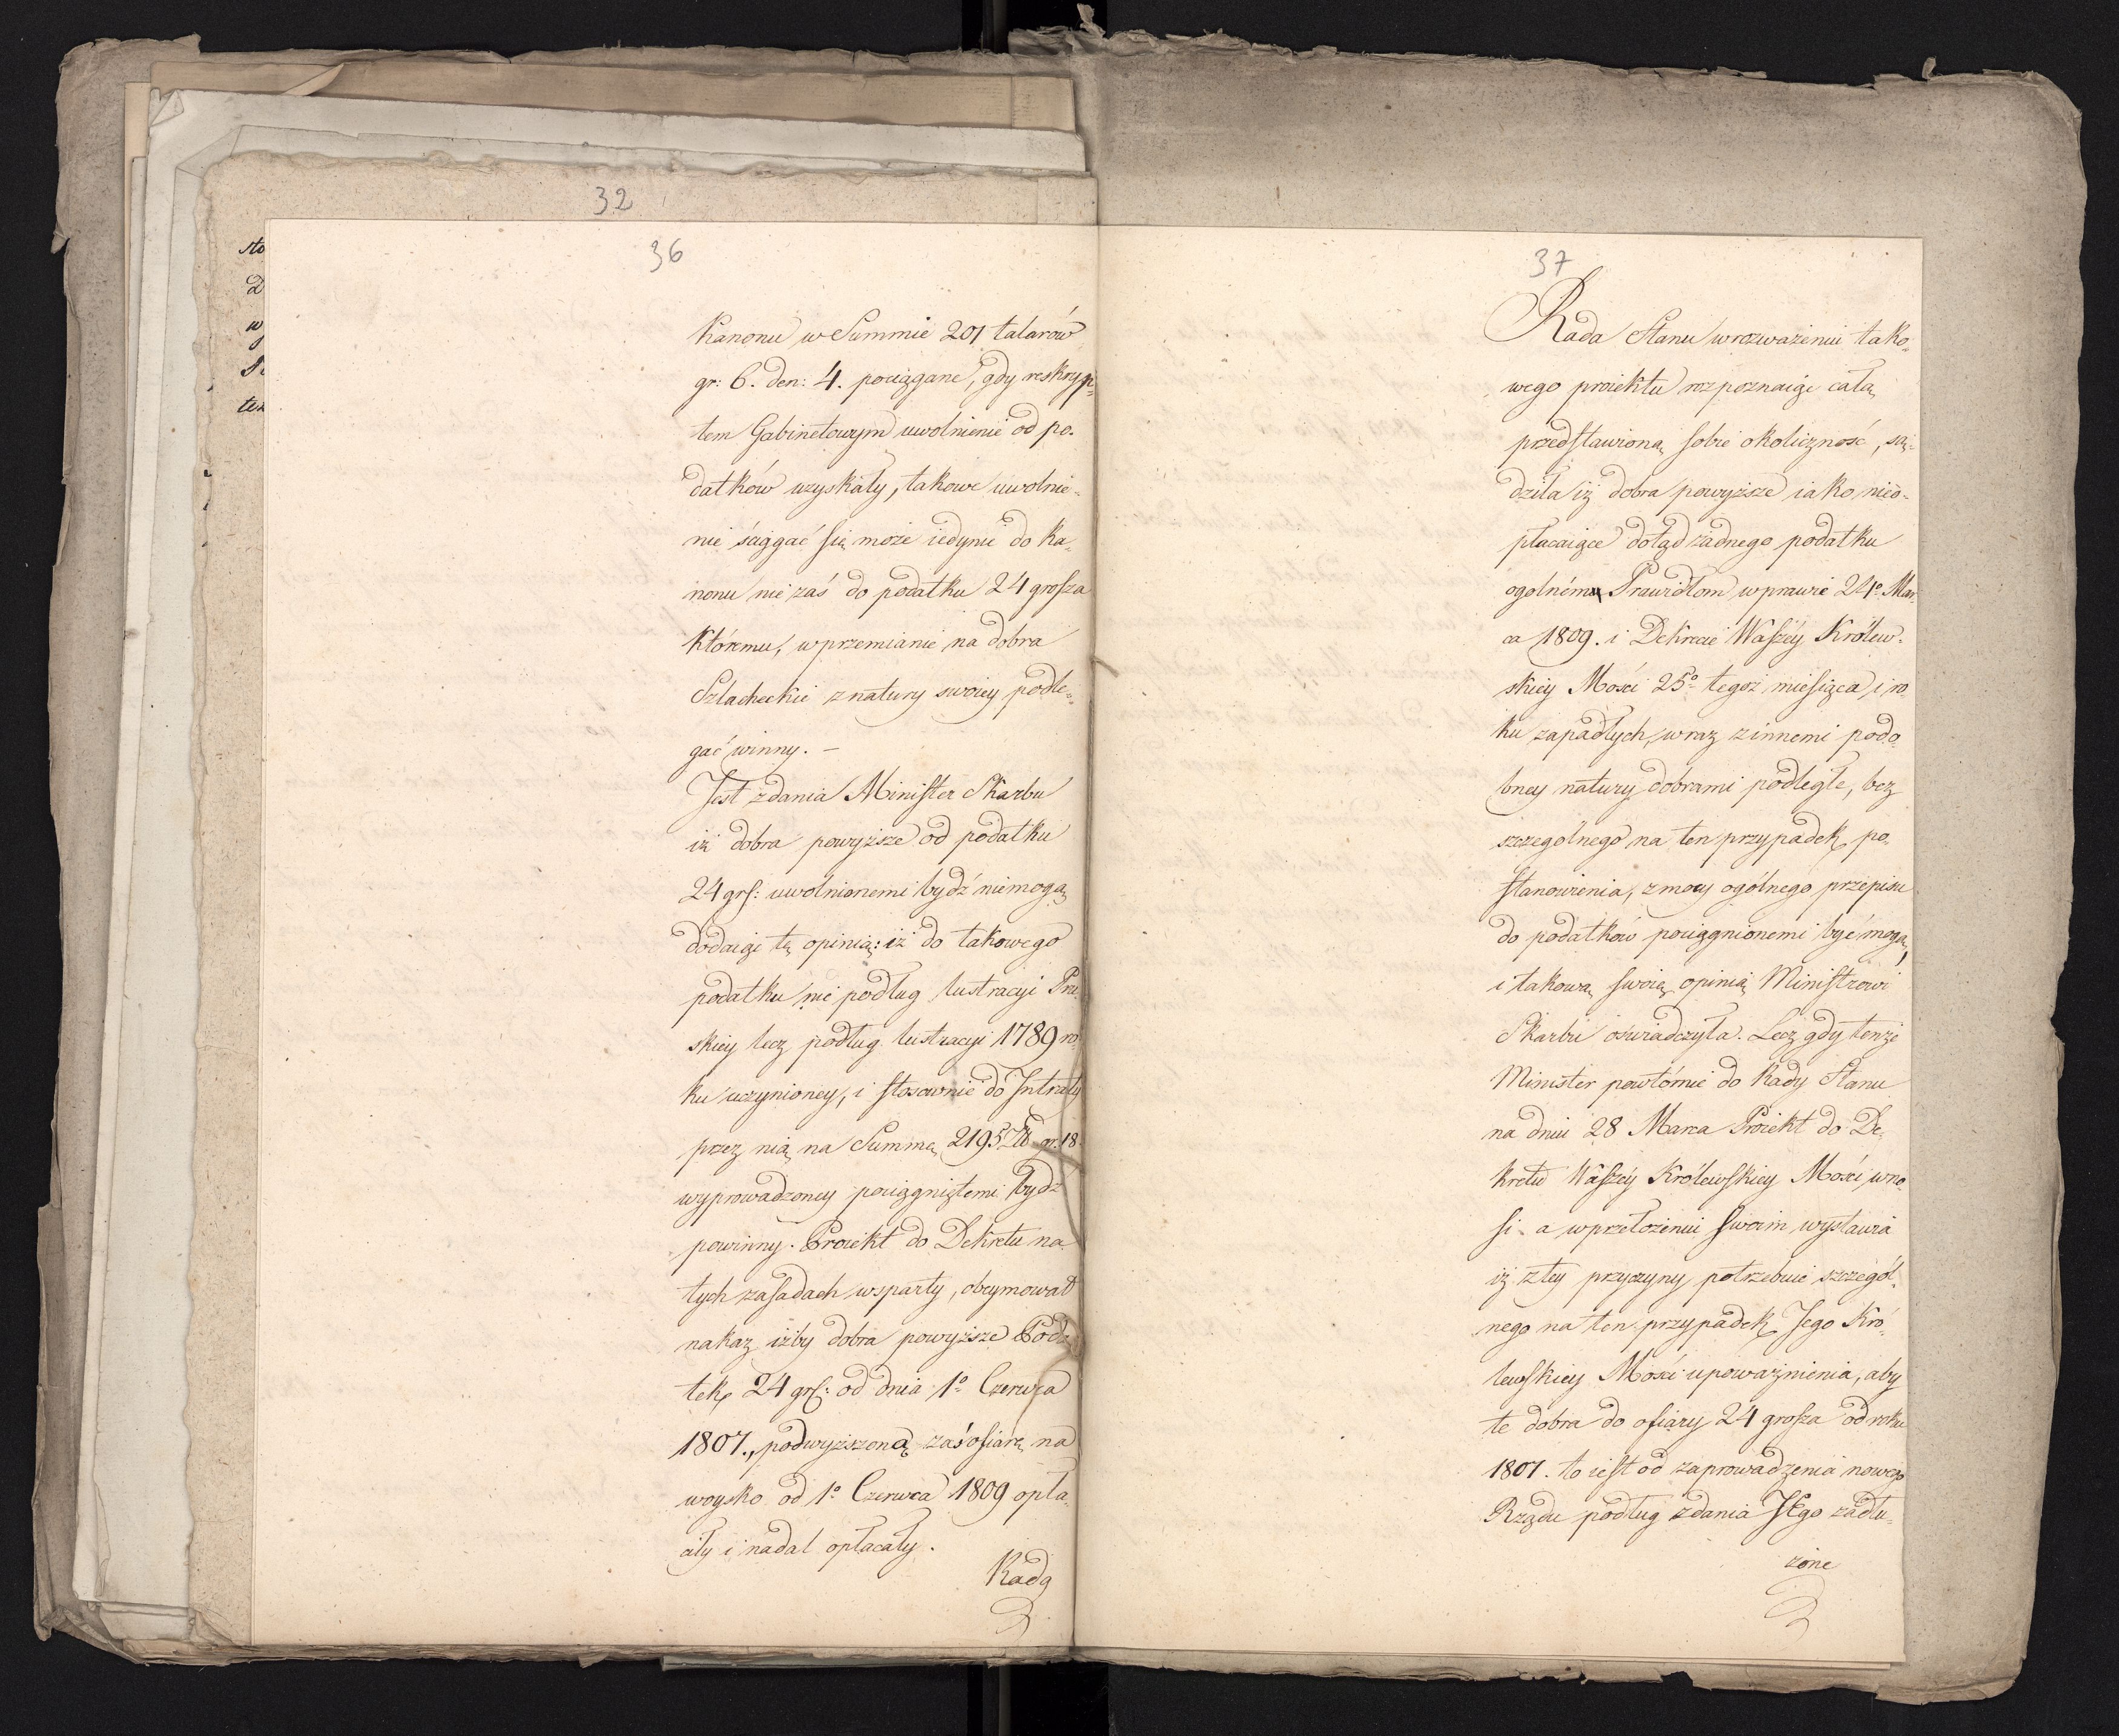 32
36
sto
D
w
te
Kanonu w Summie 201 talarów
gr: 6. den: 4. pociągane, gdy reskryp-
tem Gabinetowym uwolnienie od po-
datków uzyskały, takowe uwolnie-
nie ściągać się może iedynie do ka-
nonu nie zaś do podatku 24 grosza
któremu, w przemianie na dobra
Szlacheckie z natury swoiey podle-
gać winny. –
Jest zdania Minister Skarbu
iż dobra powyższe od podatku
24 grs: uwolnionemi bydź niemogą
dodaiąc tę opinią: iż do takowego
podatku nie podług lustracyi Pru
skiey lecz podług lustracyi 1789 ro
ku uczynioney, i stosownie do Intraty
przez nią na Summę 2195 gr. 18
wyprowadzoney pociągniętemi bydź
powinny. Proiekt do Dekretu na
tych zasadach wsparty, obeymował
nakaz iżby dobra powyższe Poda
tek 24 grs: od dnia 1o Czerwca
1807., podwyższoną zaś ofiarę na
woysko od 1o Czerwca 1809 opła-
ciły i nadal opłacały.
Rada
37
Rada Stanu w rozważeniu tako-
wego proiektu rozpoznaiąc całą
przedstawioną sobie okoliczność, są-
dziła iż dobra powyższe iako nieo-
płacaiące dotąd żadnego podatku
ogolném Prawidłom w prawie 24o Mar-
ca 1809. i Dekrecie Waszéy Królew-
skiey Mości 25o tegoż miesiąca i ro-
ku zapadłych, wraz z innemi podo-
bney natury dobrami podległe, bez
szczególnego na ten przypadek po-
stanowienia, z mocy ogólnego przepisu
do podatków pociągnionemi być mogą,
i takową swoię opinią Ministrowi
Skarbu oświadczyła. Lecz gdy tenże
Minister powtórnie do Rady Stanu
na dniu 28 Marca Proiekt do De-
kretu Waszéy Królewskiey Mości wno-
si a w przełożeniu swoim wystawia
iż z tey przyczyny potrzebuie szczegól-
nego na ten przypadek Jego Kró-
lewskiey Mości upoważnienia, aby
te dobra do ofiary 24 grosza od roku
1807. to iest od zaprowadzenia nowego
Rządu podług zdania JEgo zadłu-
żone